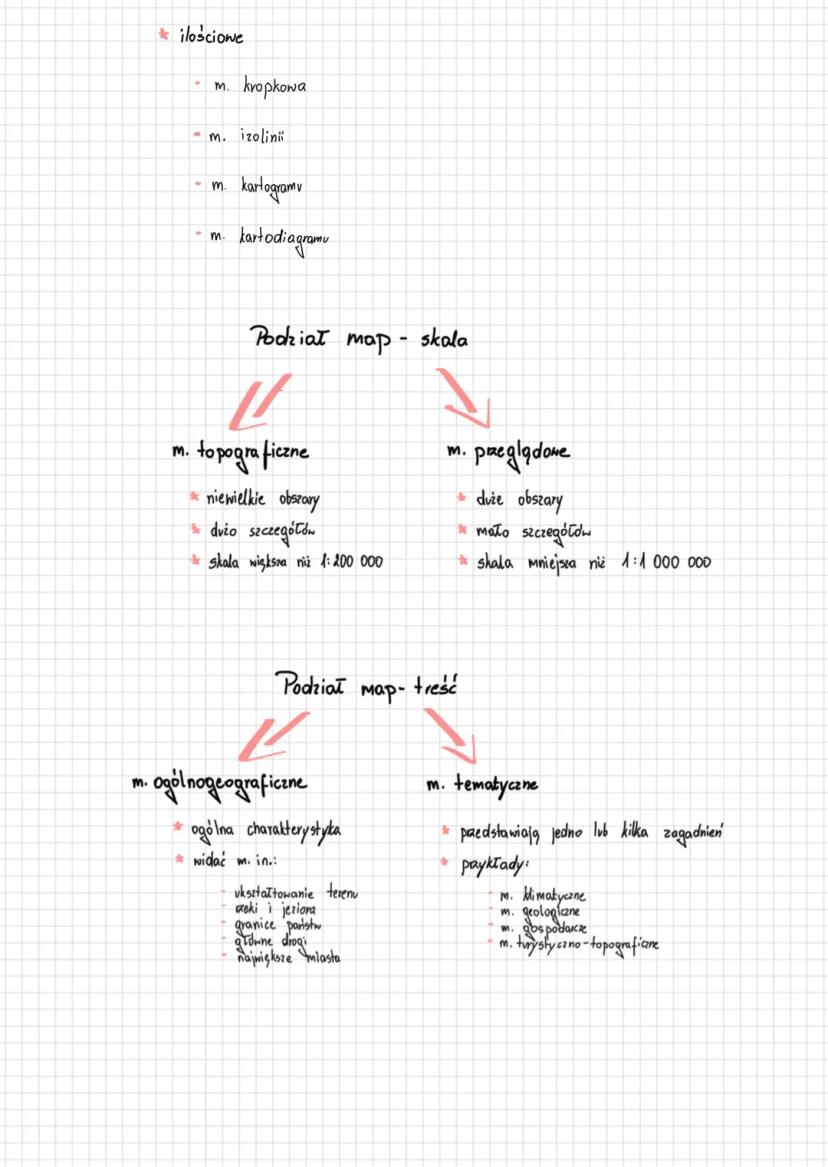 * ilościowe
- m. kropkowa
- m. izolinii
- m. kartogramu
- m. kartodiagramu
Podział map - skala
m. topograficzne
* niewielkie obszary
* dużo szczegółów
* skala większa niż 1:200 000
m. przeglądowe
* duże obszary
* mało szczegółów
* skala mniejsza niż 1:1 000 000
Podział map - treść
m. ogólnogeograficzne
* ogólna charakterystyka
* widać m. in.:
- ukształtowanie terenu
- rzeki i jeziora
- granice państw
- główne drogi
- największe miasta
m. tematyczne
* przedstawiają jedno lub kilka zagadnień
* przykłady:
- m. klimatyczne
- m. geologiczne
- m. gospodarcze
- m. turystyczno-topograficzne